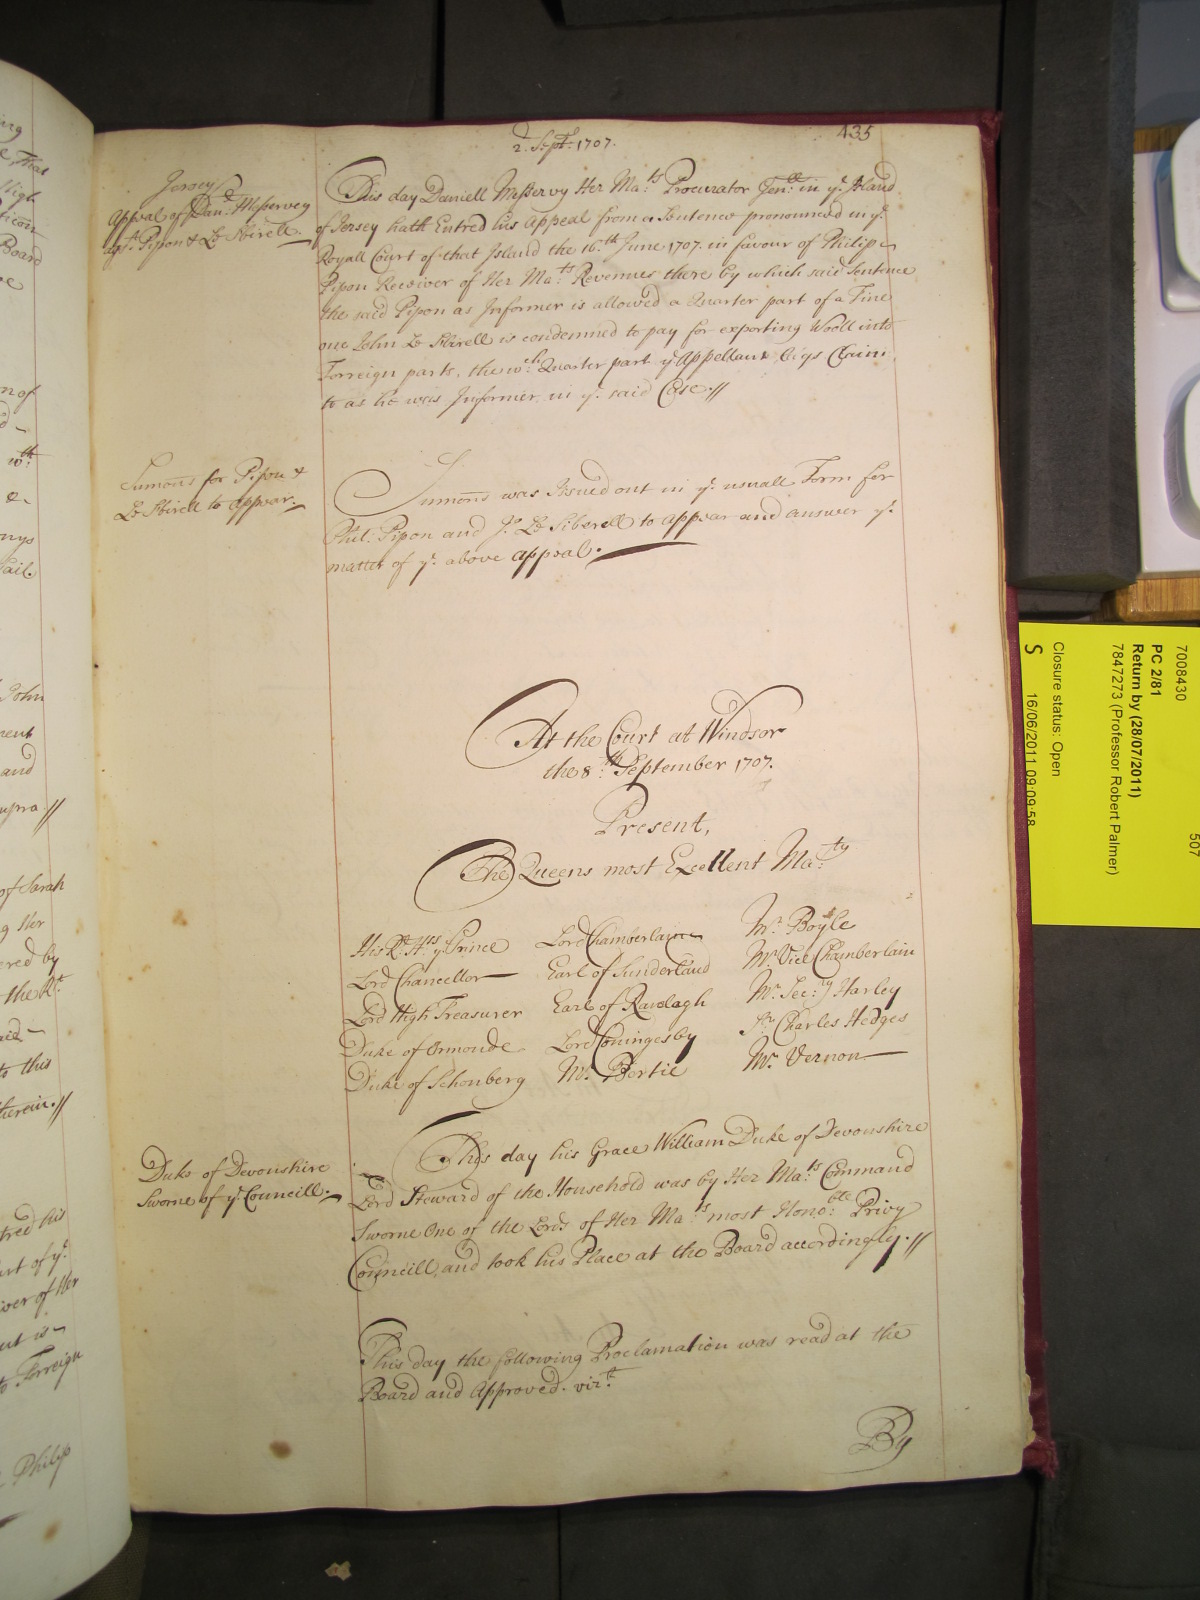 2d. Sept. 1707.
435
Jersey
Appeal of Dan: Messervey
agt. Pipon & Le Sbirell.
This day Daniell Messervy Her Mats. Procurator Genll. in ye. Island
of Jersey hath Entred his Appeal from a Sentence pronounced in ye.
Royall Court of that Island the 16th. June 1707. in favour of Philip
Pipon Receiver of Her Mats. Revenues there by which said Sentence
the said Pipon as Informer is allowed a Quarter part of a Fine
one John Le Sbirell is condemned to pay for exporting Wooll into
Forreign parts, the wch. Quarter part ye Appellant Claim
to as he was Informer in ye. said Case.//
Sumons for Pipon &
Le Sbirell to appear.
Sumons was Issued out in ye. usuall Form for
Phil: Pipon and Jo. Le Siberell to appear and answer ye.
matter of ye. above appeal.
At the Court at Windsor
the 8th. September 1707.
Present,
The Queens most Excellent Maty.
His Rl. Hs. ye Prince
Lord Chancellor
Lord High Treasurer
Duke of Ormonde
Duke of Schonberg
Lord Chamberlain
Earl of Sunderland
Earl of Ranelagh
Lord Coningesby
Mr. Bertie
Mr. Boyle
Mr. Vice Chamberlain
Mr. Secry. Harley
Sr. Charles Hedges
Mr. Vernon
Duke of Devonshire
Sworne of ye. Councill.
This day his Grace William Duke of Devonshire
Lord Steward of the Household was by Her Mats. Command
Sworne One of the Lords of Her Mats. most Honoble. Privy
Councill, and took his Place at the Board accordingly.//
This day the following Proclamation was read at the
Board and Approved. vizt.
By
7008430
507
PC 2/81
Return by (28/07/2011)
7847273 (Professor Robert Palmer)
Closure status: Open
S
16/06/2011 09:09:58